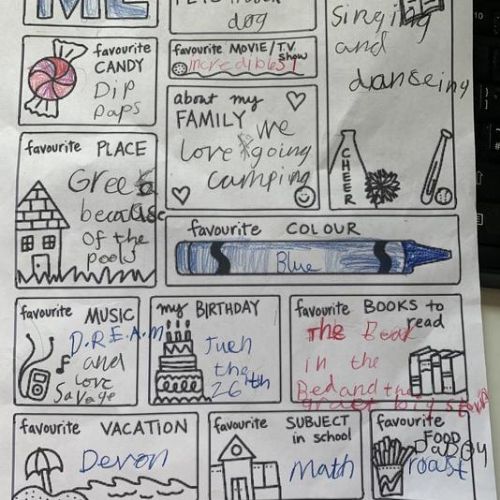 ME
dog
Singing
and
danceing
favourite
CANDY
Dip
Daps
favourite MOVIE/T.V.
Show
Incredibles 1
about my
FAMILY
we
love going
camping
CHEER
favourite PLACE
Greece
because
of the
pools
favourite COLOUR
Blue
favourite MUSIC
D.R.E.A.M
and
Love
Savage
my BIRTHDAY
Juen
the
26th
favourite BOOKS to
read
The Bear
in the
Bed and the
great big storm
favourite VACATION
Devon
favourite SUBJECT
in school
Math
favourite
FOOD
roast